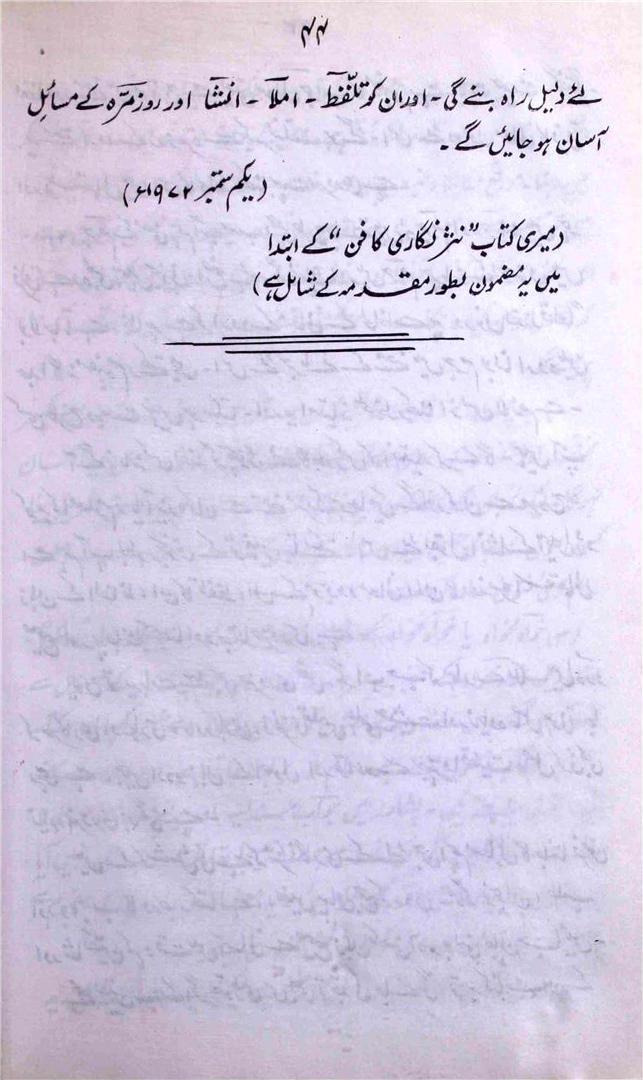 ۴۴
لئے دلیل راہ بنے گی۔ اور ان کو تلفّفظ۔ املاَ۔ انشاَ اور روزمرّہ کے مسائل
آسان ہو جائیں گے۔
(یکم ستمبر ۱۹۷۲ء)
(میری کتاب "نثر نگاری کا فن" کے ابتدا
میں یہ مضمون بطور مقدمہ کے شامل ہے)